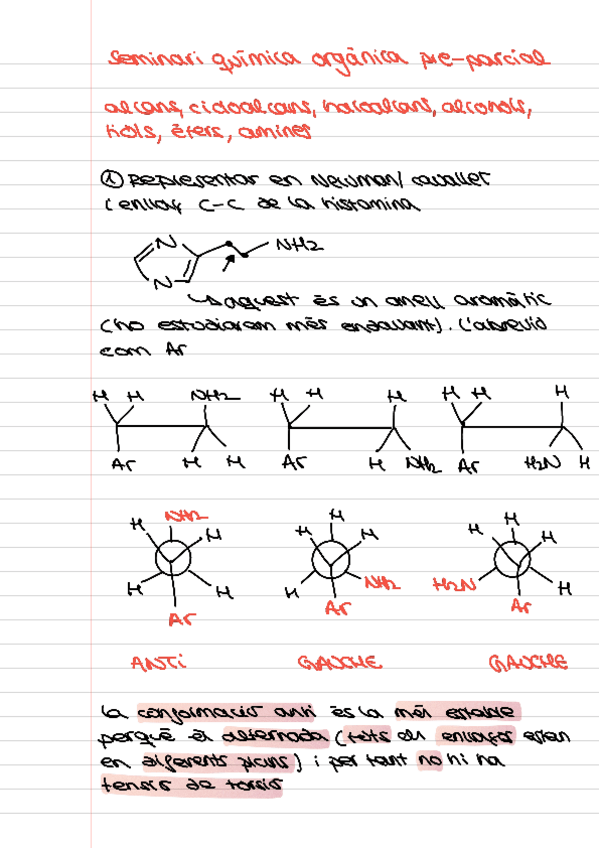 Seminari química orgànica pre-parcial
alcans, cicloalcans, haloalcans, alcohols,
tiols, èters, amines
① Representar en Newman/ cavallet
l'enllaç C-C de la histamina
N
NH2
N
↳ aquest és un anell aromàtic
(ho estudiarem més endavant). L'abrevio
com Ar
H H NH2 H H H H H H
Ar H H Ar H NH2 Ar H2N H
NH2 H H
H H H H H H
H H H NH2 H2N H
Ar Ar Ar
ANTi GAUCHE GAUCHE
la conformació anti és la més estable
perquè és alternada (tots els enllaços estan
en diferents plans) i per tant no hi ha
tensió de torsió